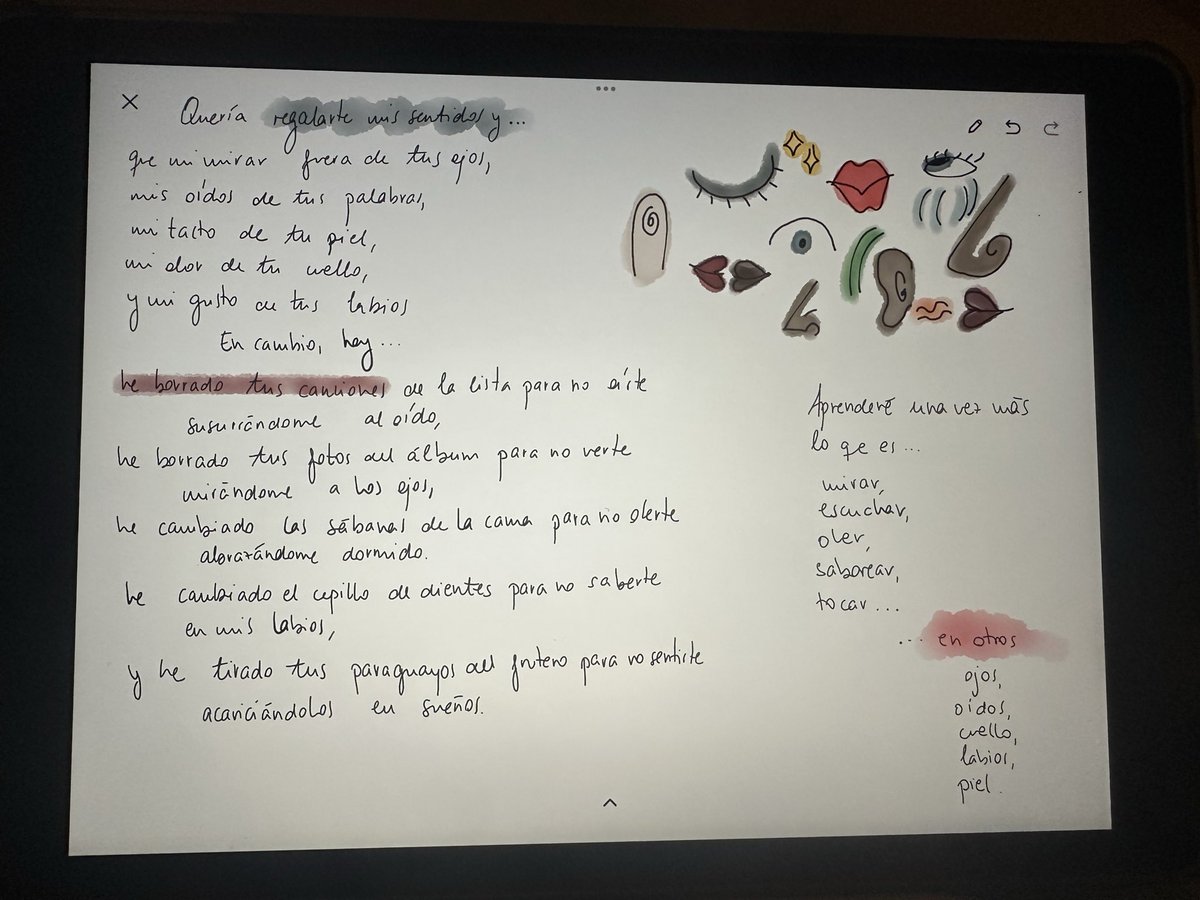 Quería regalarte mis sentidos y...
que mi mirar fuera de tus ojos,
mis oídos de tus palabras,
mi tacto de tu piel,
mi olor de tu cuello,
y mi gusto de tus labios
En cambio, hoy...
he borrado tus canciones de la lista para no oírte
susurrándome al oído,
he borrado tus fotos del álbum para no verte
mirándome a los ojos,
he cambiado las sábanas de la cama para no olerte
abrazándome dormido.
he cambiado el cepillo de dientes para no saberte
en mis labios,
y he tirado tus paraguayos del frutero para no sentirte
acariciándolos en sueños.
Aprenderé una vez más
lo que es...
mirar,
escuchar,
oler,
saborear,
tocar...
... en otros
ojos,
oídos,
cuello,
labios,
piel.